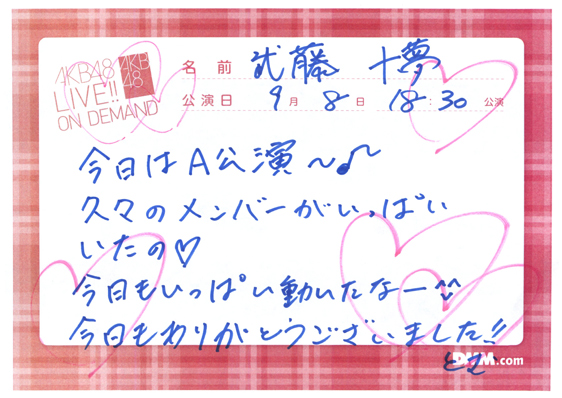 AKB48
LIVE!!
ON DEMAND
AKB
48
名前 武藤 十夢
公演日 9月 8日 18:30 公演
今日はA公演〜♪
久々のメンバーがいっぱい
いたの♡
今日もいっぱい動いたなー^^
今日もありがとうございました!!
DMM.com
とむ